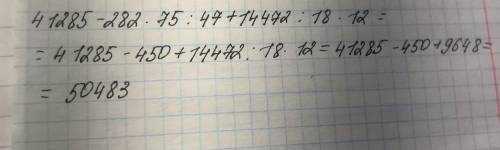 41285-282·75:47+14472:18·12=
=41285-450+14472:18·12=41285-450+9648=
=50483